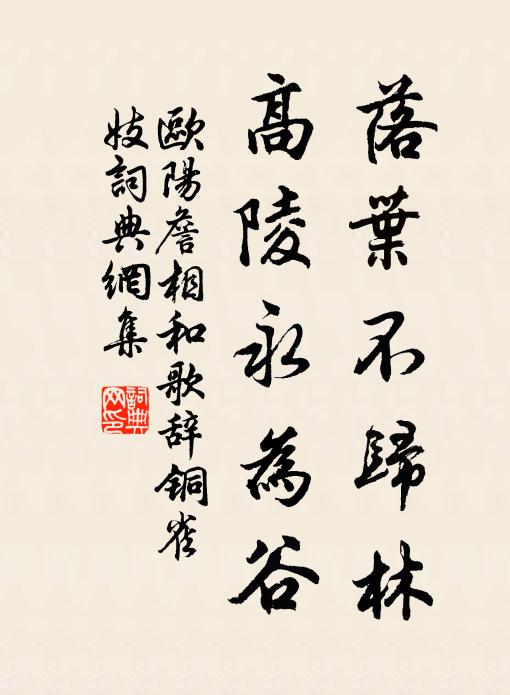 落葉不歸林
高陵永為谷
歐陽詹相和歌辞铜雀
妓詞典網集
詞典
网印